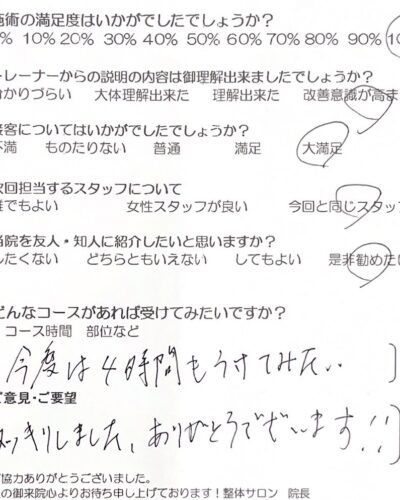 施術の満足度はいかがでしたでしょうか?
% 10% 20% 30% 40% 50% 60% 70% 80% 90% 10
トレーナーからの説明の内容は御理解出来ましたでしょうか?
分かりづらい 大体理解出来た 理解出来た 改善意識が高ま
接客についてはいかがでしたでしょうか?
不満 ものたりない 普通 満足 大満足
次回担当するスタッフについて
誰でもよい 女性スタッフが良い 今回と同じスタッフ
当院を友人・知人に紹介したいと思いますか?
したくない どちらともいえない してもよい 是非勧めたい
どんなコースがあれば受けてみたいですか?
コース時間 部位など
今度は4時間もうけてみたい )
ご意見・ご要望
スッキリしました、ありがとうございます!!)
協力ありがとうございました。
の御来院心よりお待ち申し上げております!整体サロン 院長